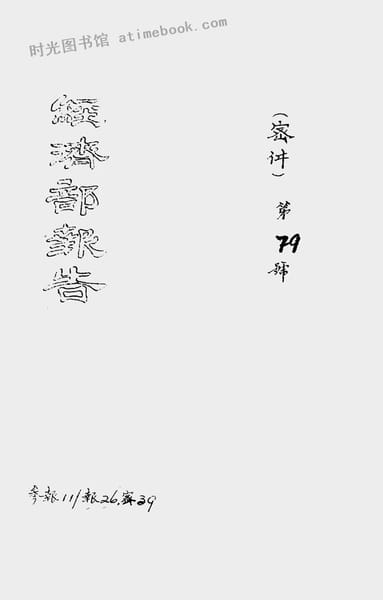 时光图书馆 atimebook.com
（密件）第79號
經濟部報告
参報11/報26.密39